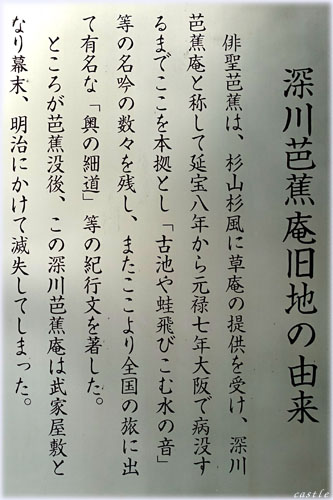 深川芭蕉庵旧地の由来
俳聖芭蕉は、杉山杉風に草庵の提供を受け、深川
芭蕉庵と称して延宝八年から元禄七年大阪で病没す
るまでここを本拠とし「古池や蛙飛びこむ水の音」
等の名吟の数々を残し、またここより全国の旅に出
て有名な「奥の細道」等の紀行文を著した。
ところが芭蕉没後、この深川芭蕉庵は武家屋敷と
なり幕末、明治にかけて滅失してしまった。
castle